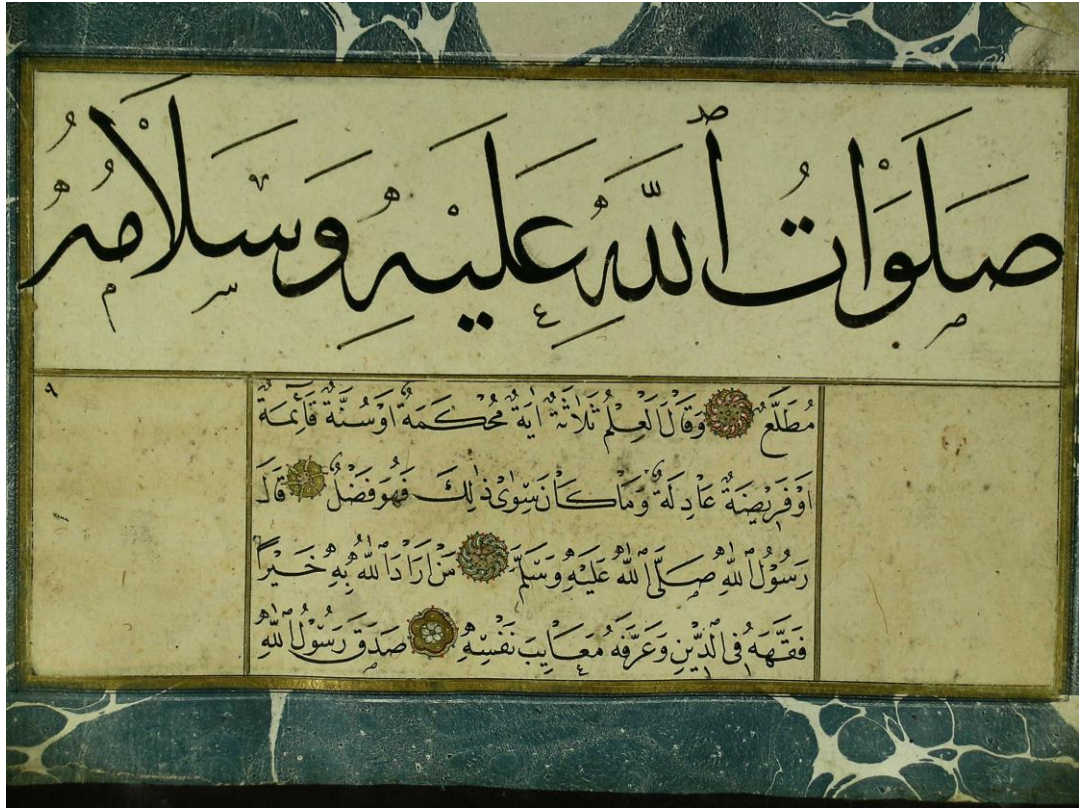 صَلَوَاتُ ٱللّٰهِ عَلَيْهِ وَسَلَامُهُ
مُطَّلَعٌ وَقَالَ الْعِلْمُ ثَلَاثَةٌ اٰيَةٌ مُحْكَمَةٌ اَوْ سُنَّةٌ قَائِمَةٌ
اَوْ فَرِيضَةٌ عَادِلَةٌ وَمَا كَانَ سِوٰى ذٰلِكَ فَهُوَ فَضْلٌ قَالَ
رَسُولُ ٱللّٰهِ صَلَّى ٱللّٰهُ عَلَيْهِ وَسَلَّمَ مَنْ اَرَادَ ٱللّٰهُ بِهِ خَيْرًا
فَقَّهَهُ فِى الدِّينِ وَعَرَّفَهُ مَعَايِبَ نَفْسِهِ صَدَقَ رَسُولُ ٱللّٰهِ